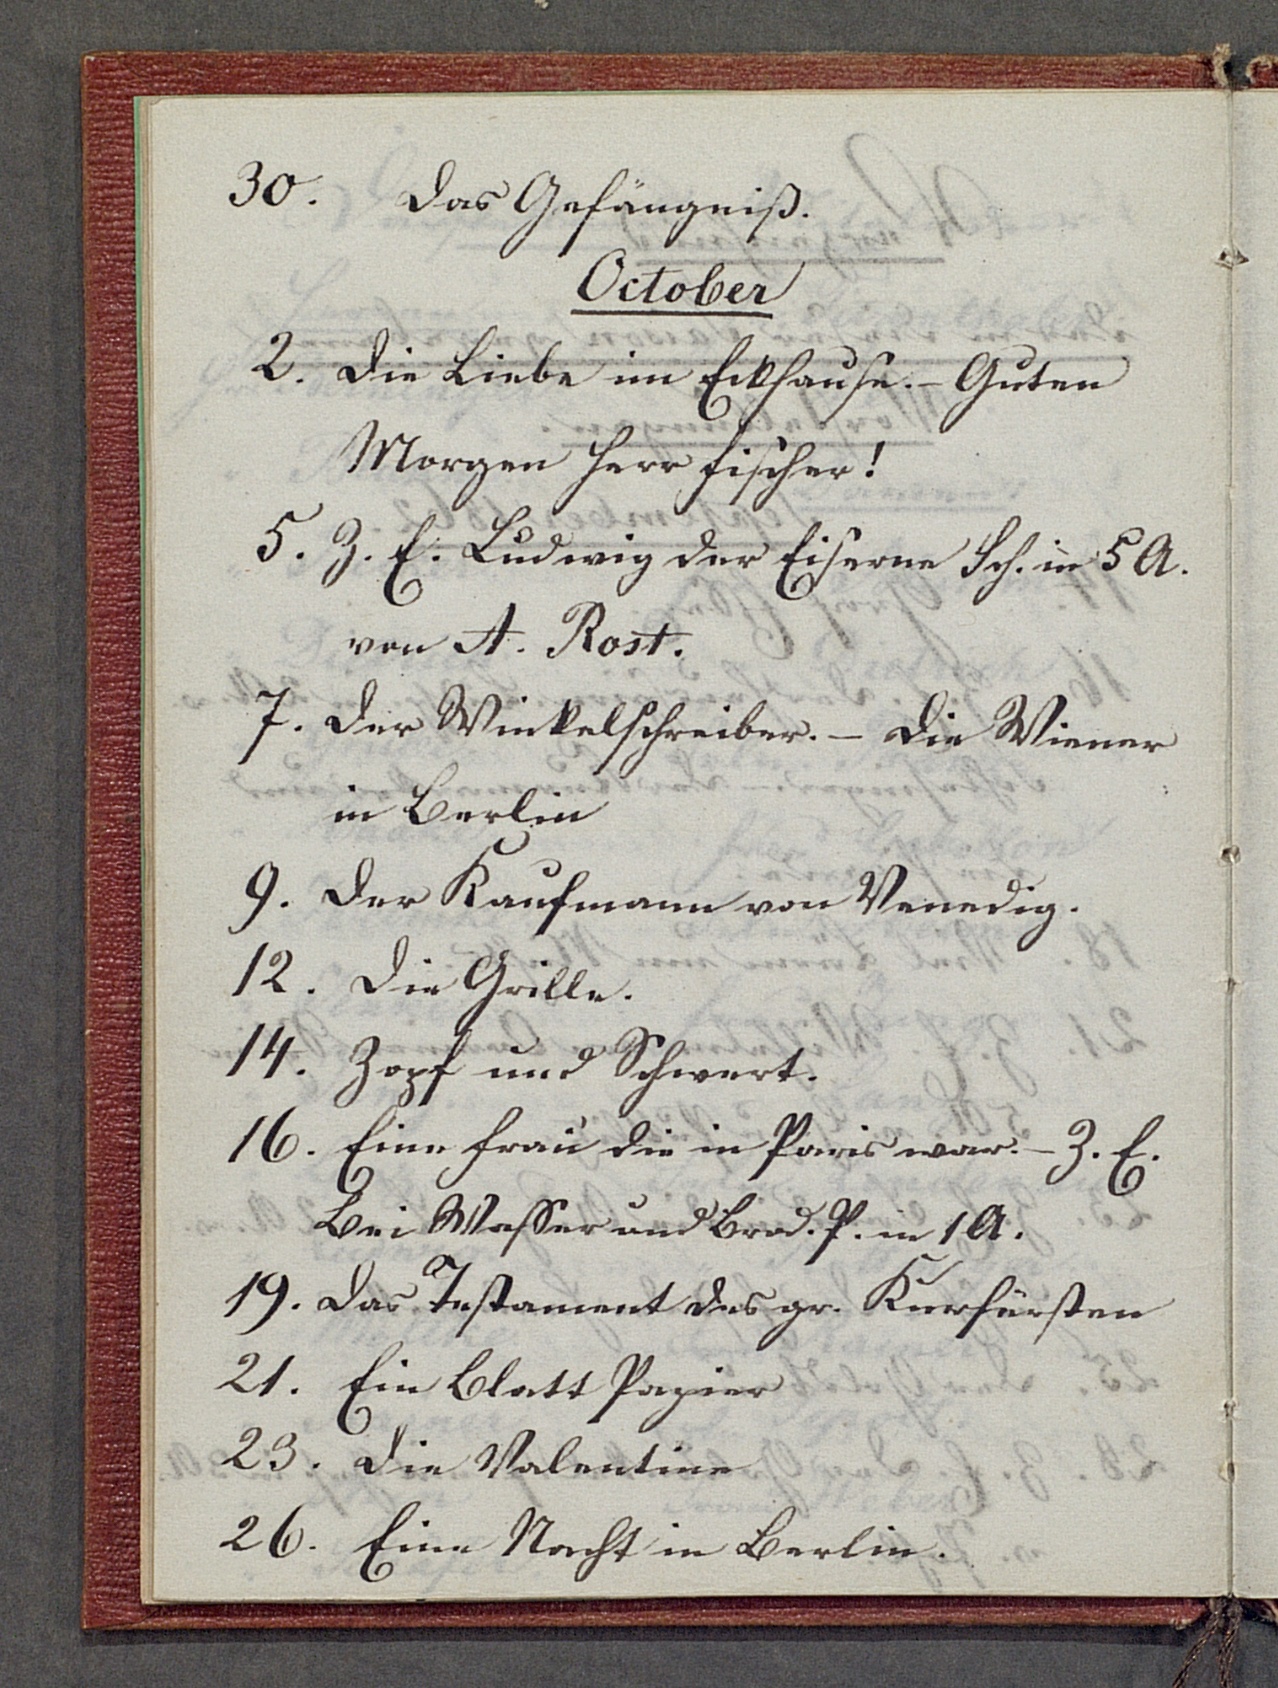 30. Das Gefängniß.
October
2. Die Liebe im Eckhause. – Guten
Morgen Herr Fischer!
5. Z. E. Ludwig der Eiserne Sch. in 5 A.
von A. Rost.
7. Der Winkelschreiber. – Die Wiener
in Berlin
9. Der Kaufmann von Venedig.
12. Die Grille.
14. Zopf und Schwert.
16. Eine Frau die in Paris war. – Z. E.
Bei Wasser und Brod. P. in 1 A.
19. Das Testament des gr. Kurfürsten
21. Ein Blatt Papier
23. Die Valentine
26. Eine Nacht in Berlin.